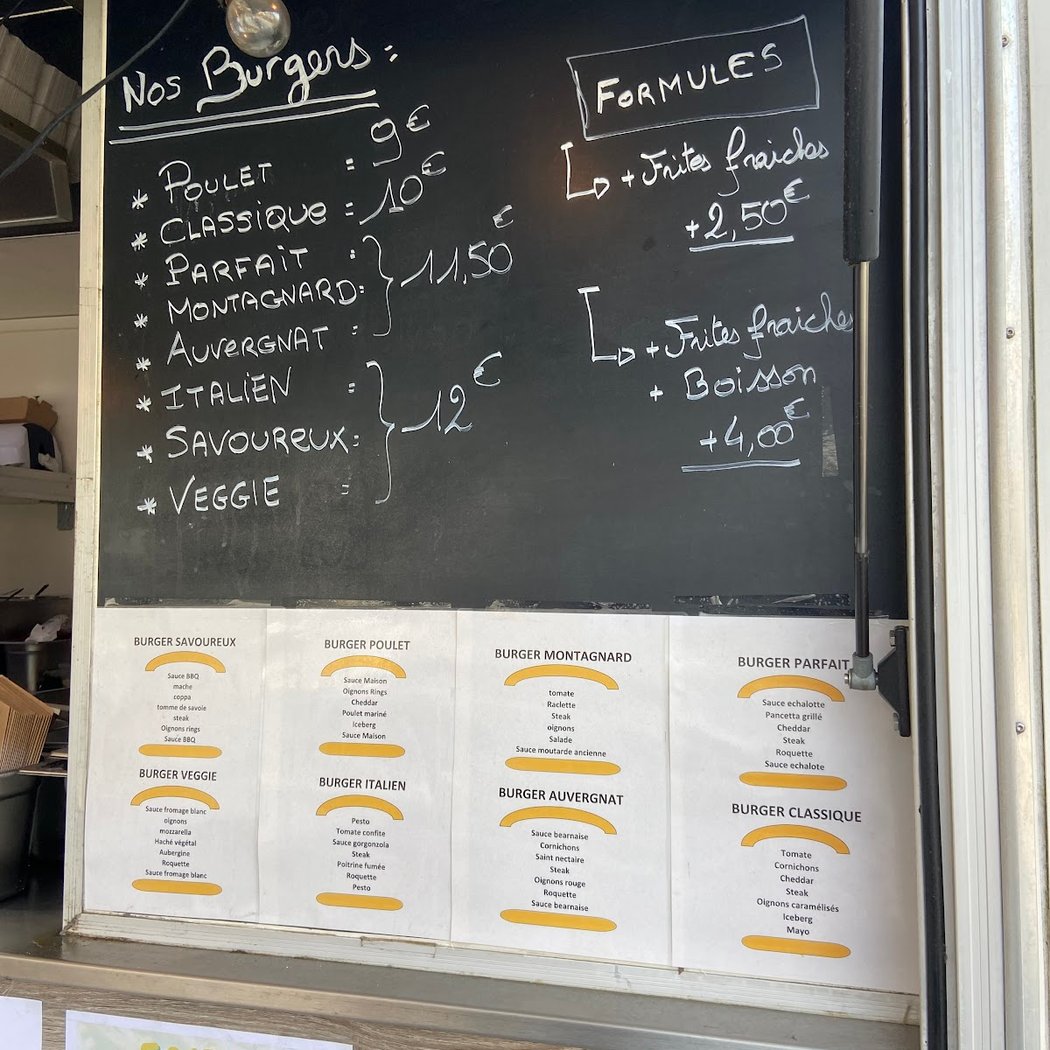 Nos Burgers :
* POULET = 9€
* CLASSIQUE = 10€
* PARFAIT :
* MONTAGNARD: } 11,50€
* AUVERGNAT :
* ITALIEN =
* SAVOUREUX: } 12€
* VEGGIE =
FORMULES
+ Frites fraiches
+2,50€
+ Frites fraiches
+ Boisson
+4,00€
BURGER SAVOUREUX
Sauce BBQ
mache
coppa
tomme de savoie
steak
Oignons rings
Sauce BBQ
BURGER POULET
Sauce Maison
Oignons Rings
Cheddar
Poulet mariné
Iceberg
Sauce Maison
BURGER MONTAGNARD
tomate
Raclette
Steak
oignons
Salade
Sauce moutarde ancienne
BURGER PARFAIT
Sauce echalotte
Pancetta grillé
Cheddar
Steak
Roquette
Sauce echalote
BURGER VEGGIE
Sauce fromage blanc
oignons
mozzarella
Haché végétal
Aubergine
Roquette
Sauce fromage blanc
BURGER ITALIEN
Pesto
Tomate confite
Sauce gorgonzola
Steak
Poitrine fumée
Roquette
Pesto
BURGER AUVERGNAT
Sauce bearnaise
Cornichons
Saint nectaire
Steak
Oignons rouge
Roquette
Sauce bearnaise
BURGER CLASSIQUE
Tomate
Cornichons
Cheddar
Steak
Oignons caramélisés
Iceberg
Mayo